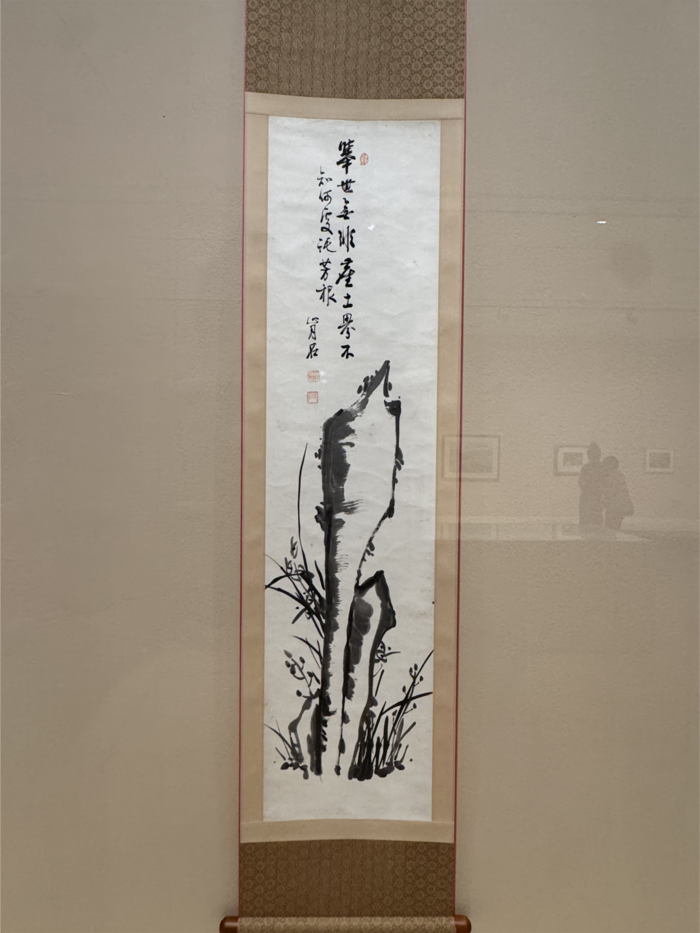 舉世無非塵土界不
知何處託芳根
肯石